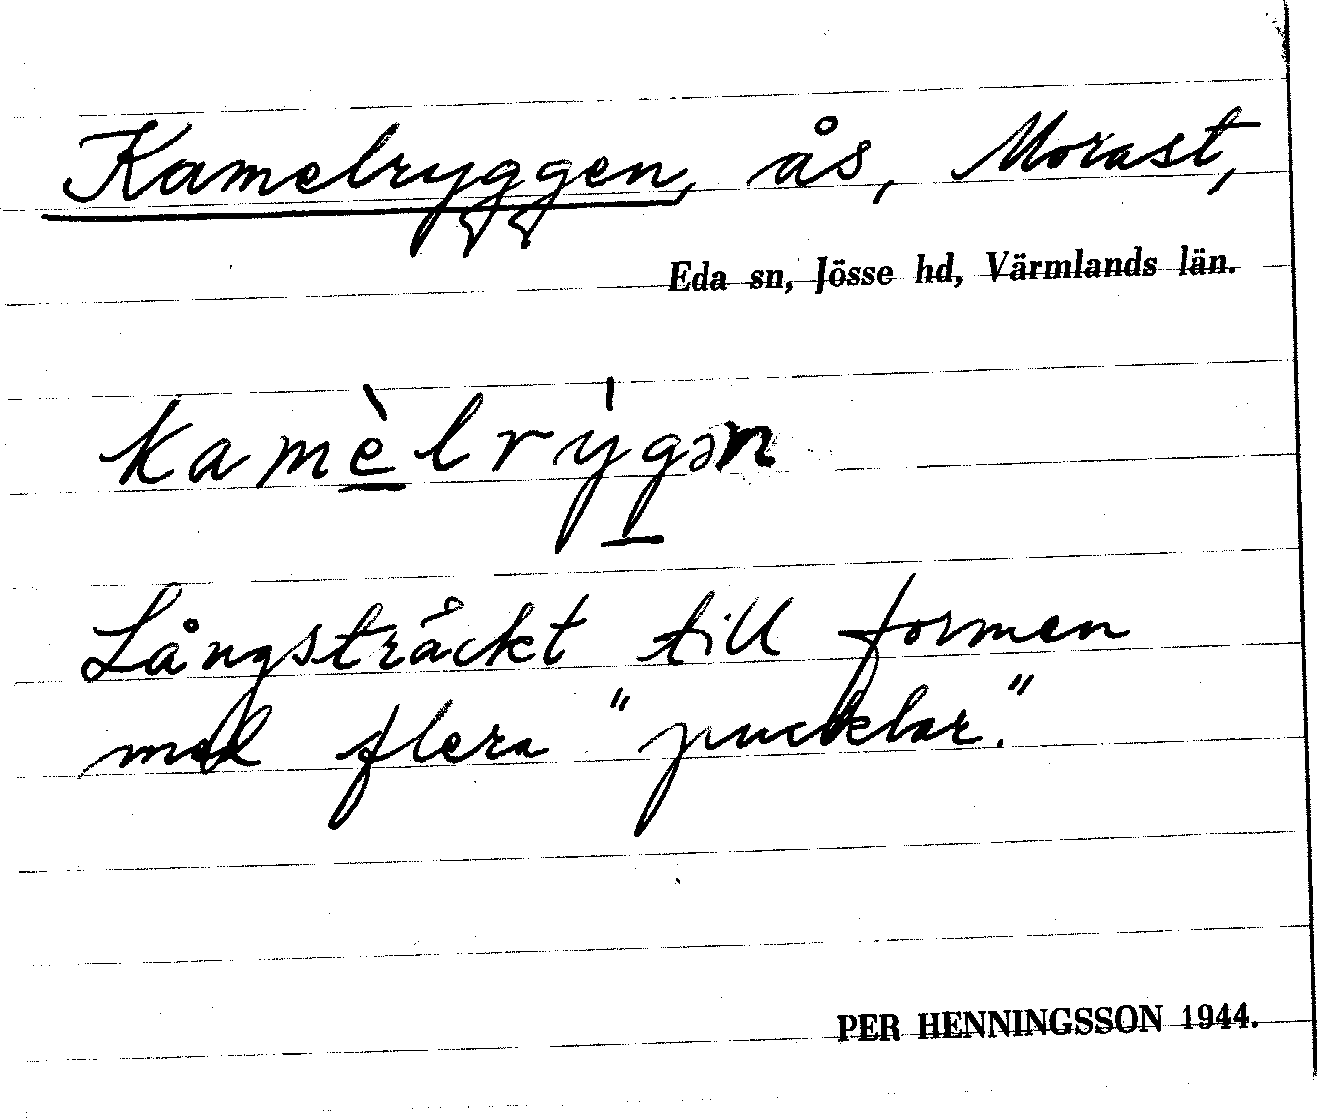 Kamelryggen, ås, Morast,
Eda sn, Jösse hd, Värmlands län.
kamèlrýgən
Långsträckt till formen
med flera "pucklar."
PER HENNINGSSON 1944.